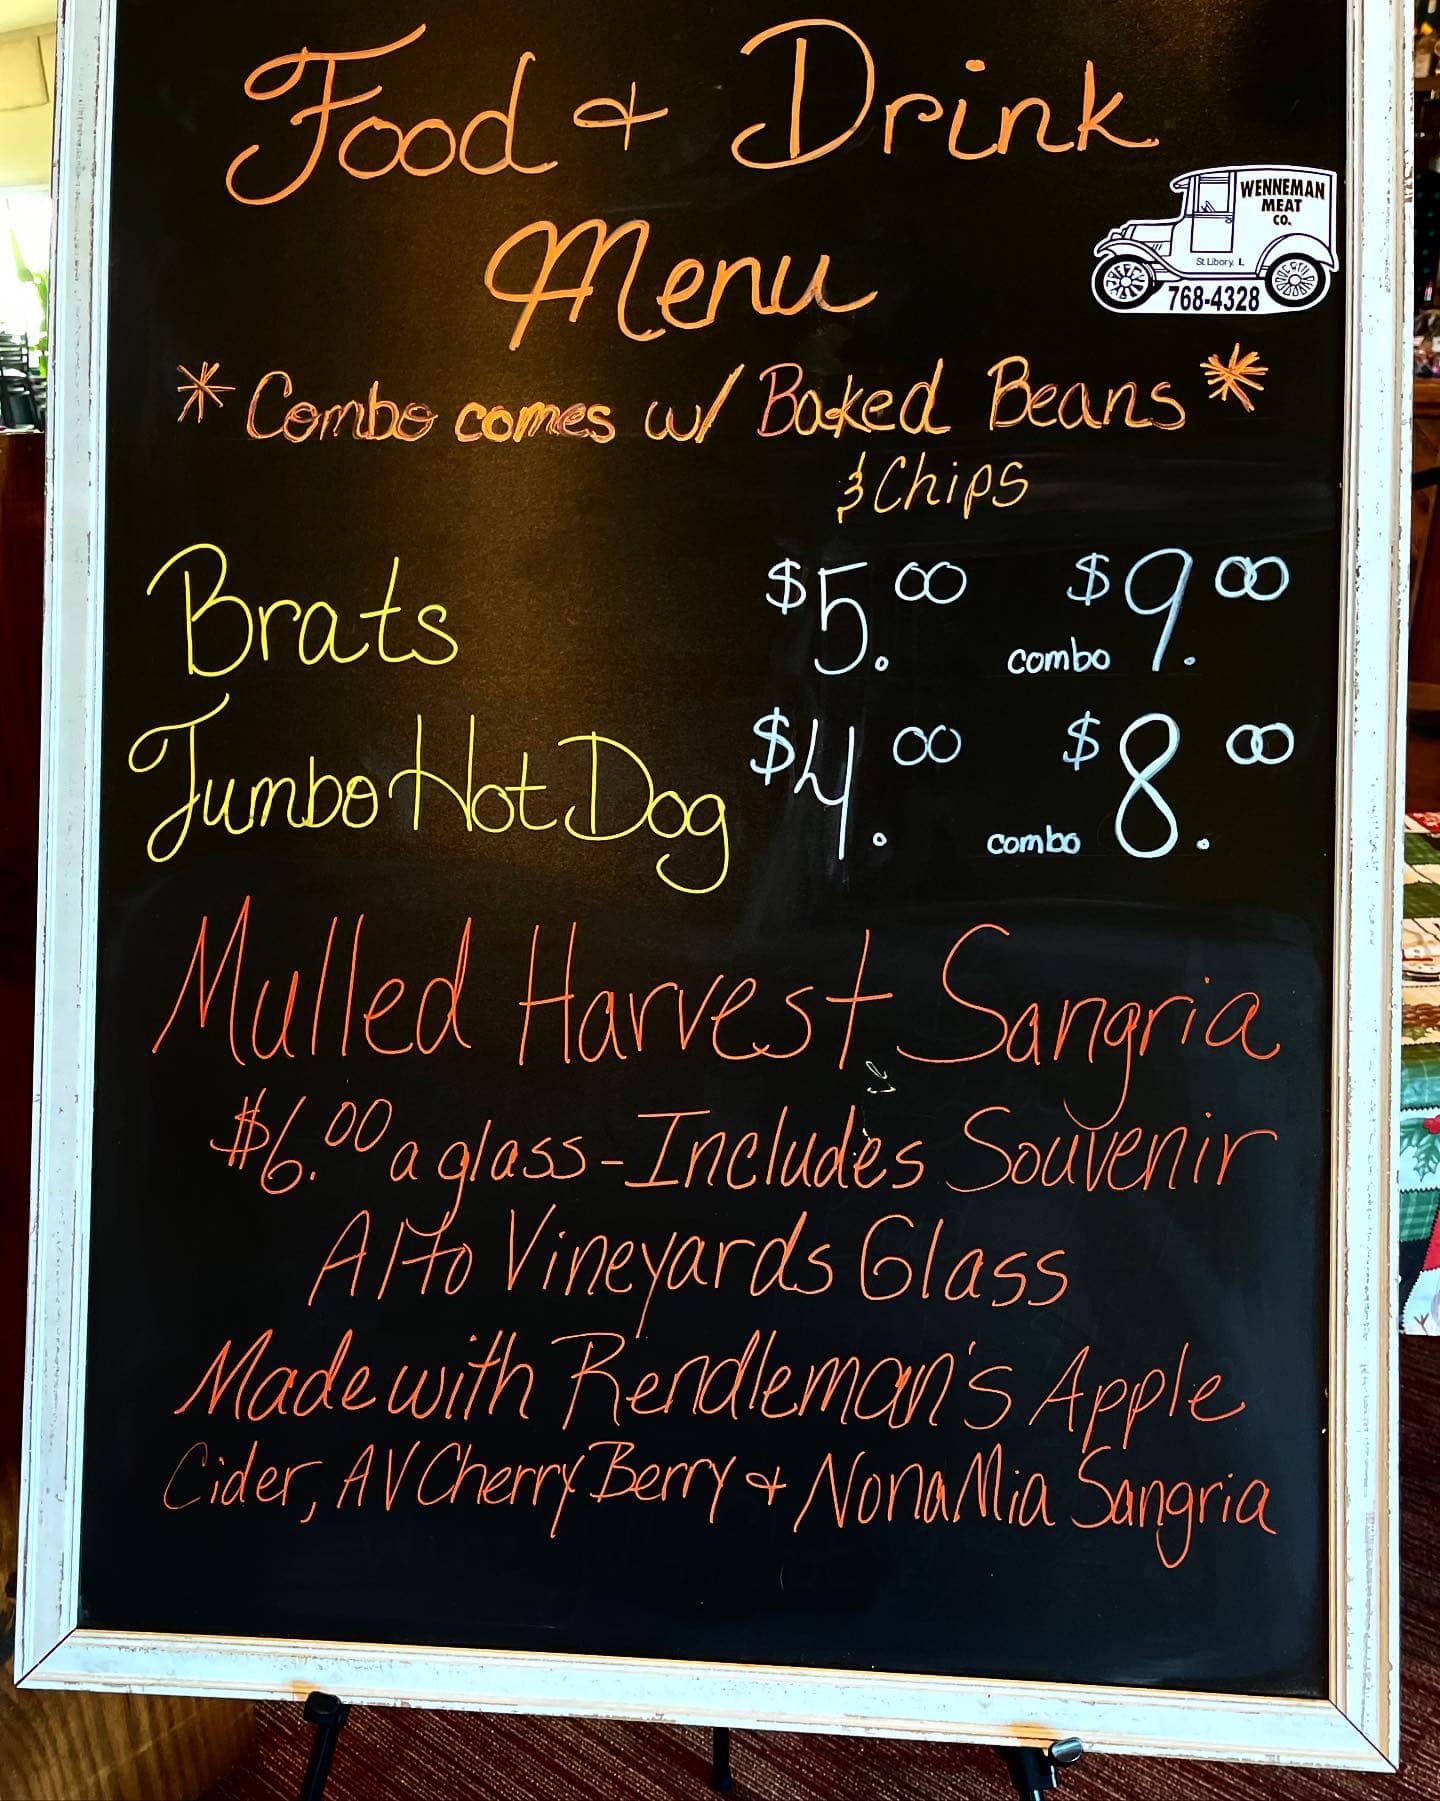 Food & Drink
Menu
WENNEMAN
MEAT
CO.
St. Libory, IL
768-4328
* Combo comes w/ Baked Beans *
& Chips
Brats $5.00 combo $9.00
Jumbo Hot Dog $4.00 combo $8.00
Mulled Harvest Sangria
$6.00 a glass - Includes Souvenir
Alto Vineyards Glass
Made with Rendleman's Apple
Cider, AV Cherry Berry & Nona Mia Sangria